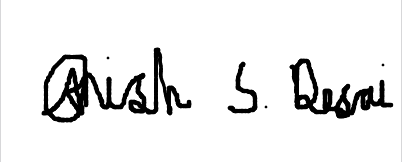 Anish S. Desai